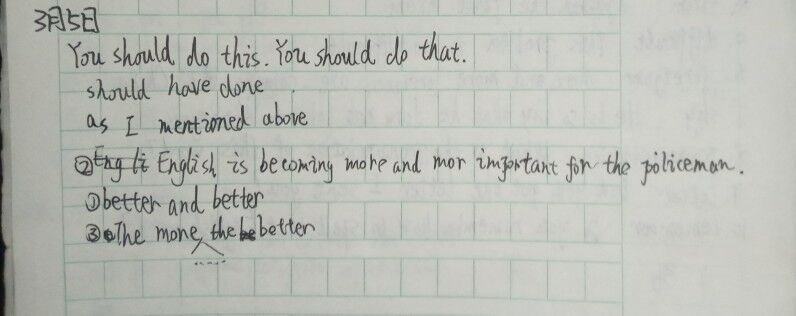 3月5日
You should do this. You should do that.
should have done
as I mentioned above
②English is becoming more and mor important for the policeman.
①better and better
③The more, the better